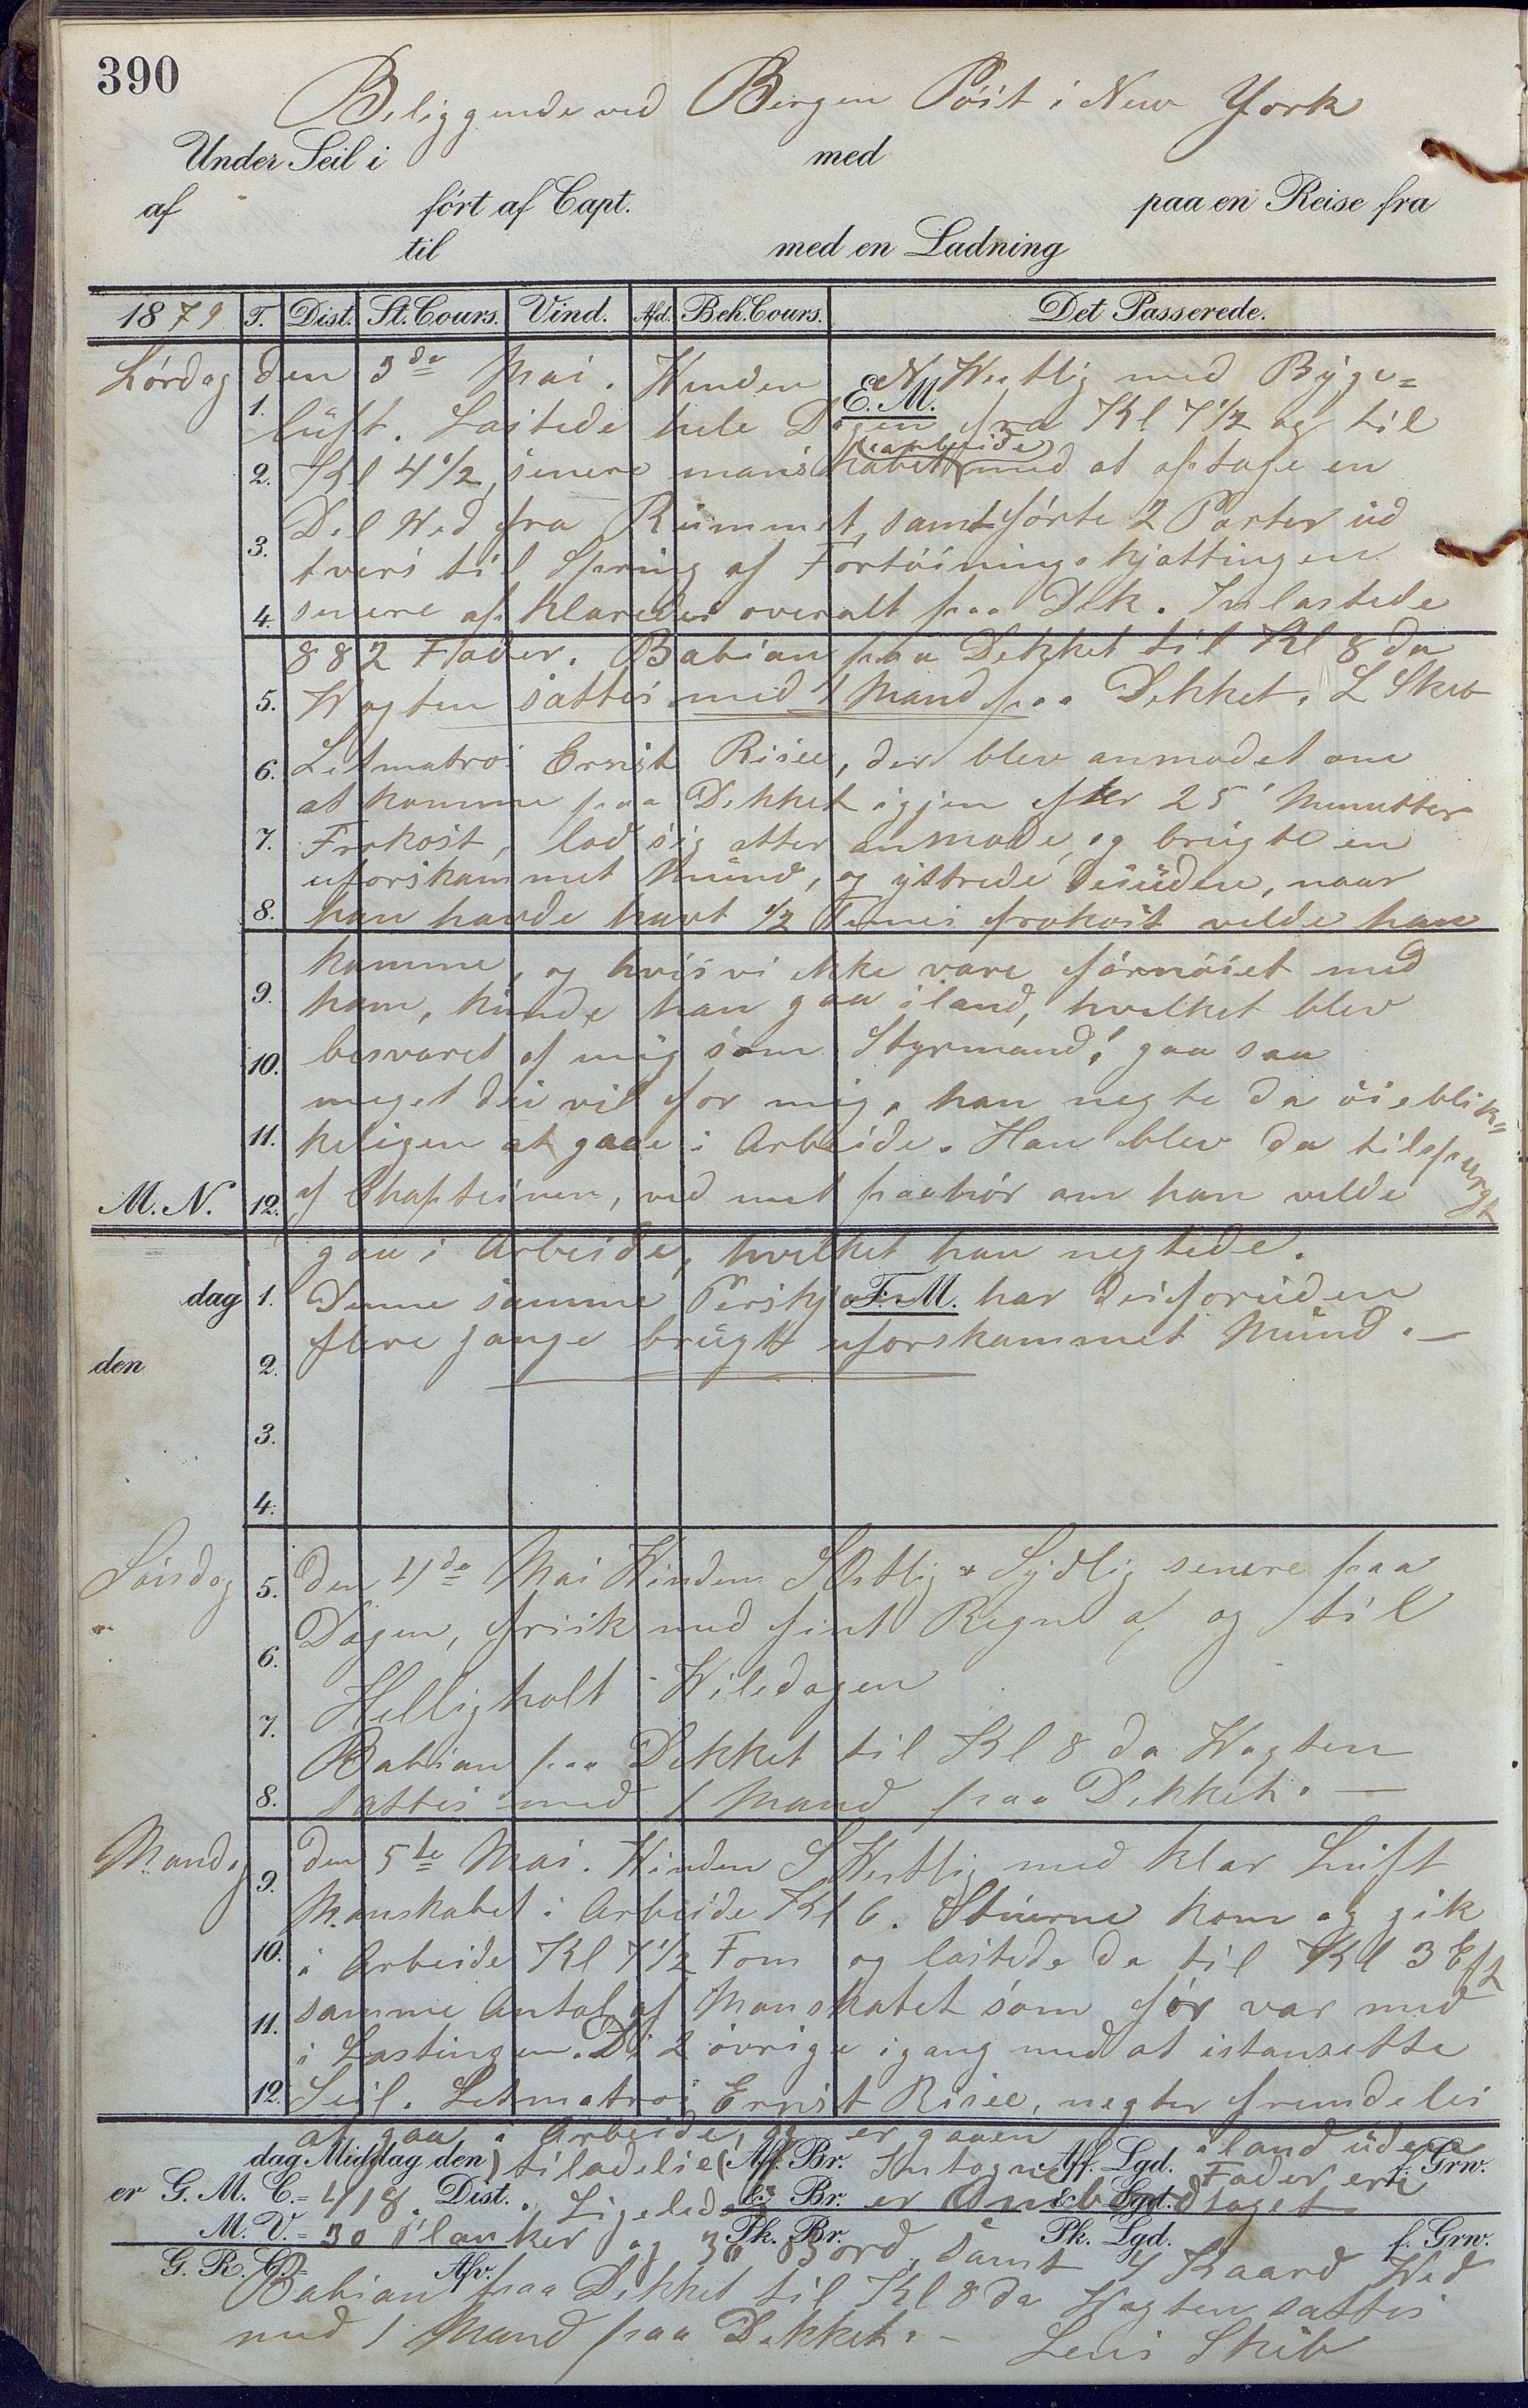 390
Beliggende ved Bergen Póist i New York
Under Seil i med
af fórt af Capt. paa en Reise fra
til med en Ladning
1879 T. Dist. St. Cours. Vind. Afd. Beh. Cours. Det Passerede.
Lórdag den 3de Mai. Winden N Westlig med Byge=
E. M.
1. luft. Lastede hele Dagen fra Kl 7 1/2 og til
2. Kl 4 1/2, senere manskabet (earbeide) med at optage en
Del Wed fra Rummet, samt fórte 2 Parter ud
3. tvers til Spring af Fortóiningskjættingen
4. senere af klaredes overalt paa Dek. Inlastede
882 Fader. Babian paa Dekket til Kl 8 da
5. Wagten sattes med 1 Mand paa Dekket. L Skib
6. Letmatros Ernst Risee, der blev anmodet om
at komme paa Dekket igjen efter 25' Minutter
7. Frokost, lod sig atter anmode, og brugte en
uforskammet Mund, og ytrede desuden, naar
8. han havde havt 1/2 Times frokost vilde han
komme, og hvis vi ikke vare fórnóiet med
9. ham, kunde han gaa iland, hvilket blev
10. besvaret af mig som Styrmand! gaa saa
meget du vil for mig, han negte da óieblik=
11. keligen at gaae i Arbeide. Han blev da tilspurgt
M. N. 12. af Chapteinen, ved mit paahór om han vilde
gaa i Arbeide, hvilket han negtede.
dag 1. Denne samme Perskjon har desforuden
F. M.
den 2. flere gange brugt uforskammet Mund. —
3.
4.
Sóndag 5. den 4de Mai Winden S Ostlig & Sydlig senere paa
6. Dagen, frisk med fint Regn af og til
Helligholt Hiledagen
7. Babian paa Dekket til Kl 8 da Wagten
8. sattes med 1 Mand paa Dekket. —
Mandag 9. den 5te Mai. Winden S Westlig med klar Luft
Manskabet i Arbeide Kl 6. Stuerne kom og gik
10. i Arbeide Kl 7 1/2 Fom og lastede da til Kl 3 Eft
11. samme Antal af Manskabet som fór var med
i Lastingen. De 2 óvrige igang med at istansette
12. Seil. Letmatros Ernst Risee, negter fremdeles
at gaa i Arbeide, og er gaaen iland uden
dag Middag den) tiladelse (Aff. Br. Intagne Aff. Lgd. Fader ere f. Grw.
er G. M. C. = 418. Dist. Ligeledes & Br. er & Lgd. taget
M. V. = 30 Planker og 30 Bord, samt 4 Kaard Wed
Pk. Br. Pk. Lgd. f. Grw.
G. R. C. = Afv.
Babian paa Dekket til Kl 8 da Wagten sattes
med 1 Mand paa Dekket. — Lens Skib